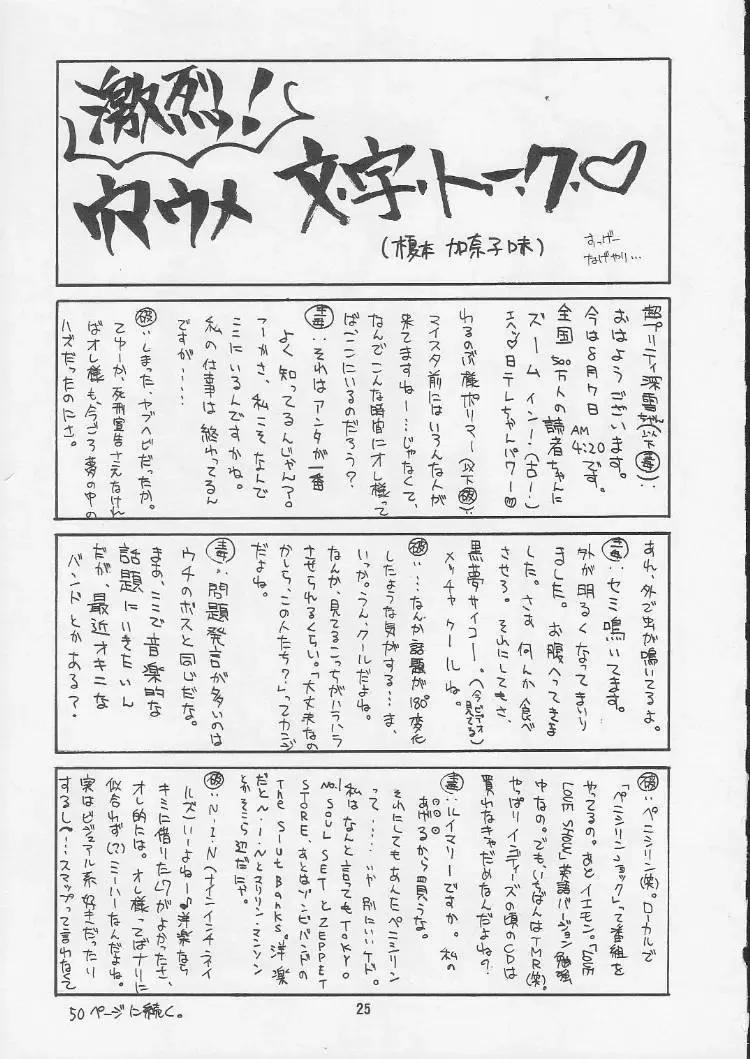 激烈!
ウマウメ 文・字・ト・ー・ク・♡
(榎本 加奈子味)
すっげー
なげやり…
超プリティ深雪ちゃん(以下毒)：
おはようございます。
今は8月7日AM4:20です。
全国500万人の読者ちゃんに
ズームイン!(古!)
エヘッ♡日テレちゃんパワー♡
わるのぶ魔ポリマー(以下破)：
マイスタ前にはいろんな人が
来てますねー…じゃなくて、
なんでこんな時間にオレ様って
ば、ここにいるのだろう?
毒：それはアンタが一番
よく知ってるんじゃん?。
つーかさ、私こそなんで
ここにいるんですかね。
私の仕事は終わってるん
ですが……
破：しまった、ヤブヘビだったか。
てゆーか、死刑宣告さえなけれ
ばオレ様も、今ごろ夢の中の
ハズだったのにさ。
あれ、外で虫が鳴いてるよ。
毒：セミ鳴いてます。
外が明るくなってまいり
ました。お腹へってきま
した。さぁ何んか食べ
させろ。それにしてもさ、
黒夢サイコー。(今、ビデオ見てる)
メッチャクールね。
破：…なんか話題が。180°変化
したような気がする…ま、
いっか。うん、クールだよね。
なんか、見てるこっちがハラハラ
させられるくらい。「大丈夫なの
かしら、この人たち?」ってカンジ
だよね。
毒：問題発言が多いのは
ウチのボスと同じだな。
まぁ、ここで音楽的な
話題にいきたいん
だが、最近オキニな
バンドとかある?
破：ペニシリン(笑)。ローカルで
「ペニシリンショック」って番組を
やってるの。あとイエモン。「SIM
SHOW」英語バージョン勉強
中なの。でも、いちばんはTMR(笑)。
やっぱりインディーズの頃のCDは
買わなきゃだめなんだよね?
毒：ルイマリーですか。私の
あげるから買うな。
それにしてもあんたペニシリン
って……いや別にいいケド。
私はなんと言ってもTOKYO
No.1 SOUL SETとZEPPET
STORE、あとはゾ・ビバンドの
The Slut Banks。洋楽
だとN・I・Nとマリリン・マンソン
とかそこら辺だにゃ。
破：N・I・N(ナインインチネイ
ルズ)いーよねー♪洋楽なら
キミに借りたL7がよかったさ、
オレ的には。オレ様ってばナリに
似合わず(?)ミーハーなんだよね。
実はビジュアル系好きだったり
するし〜…スマップって言わなくて
50ページに続く。
25